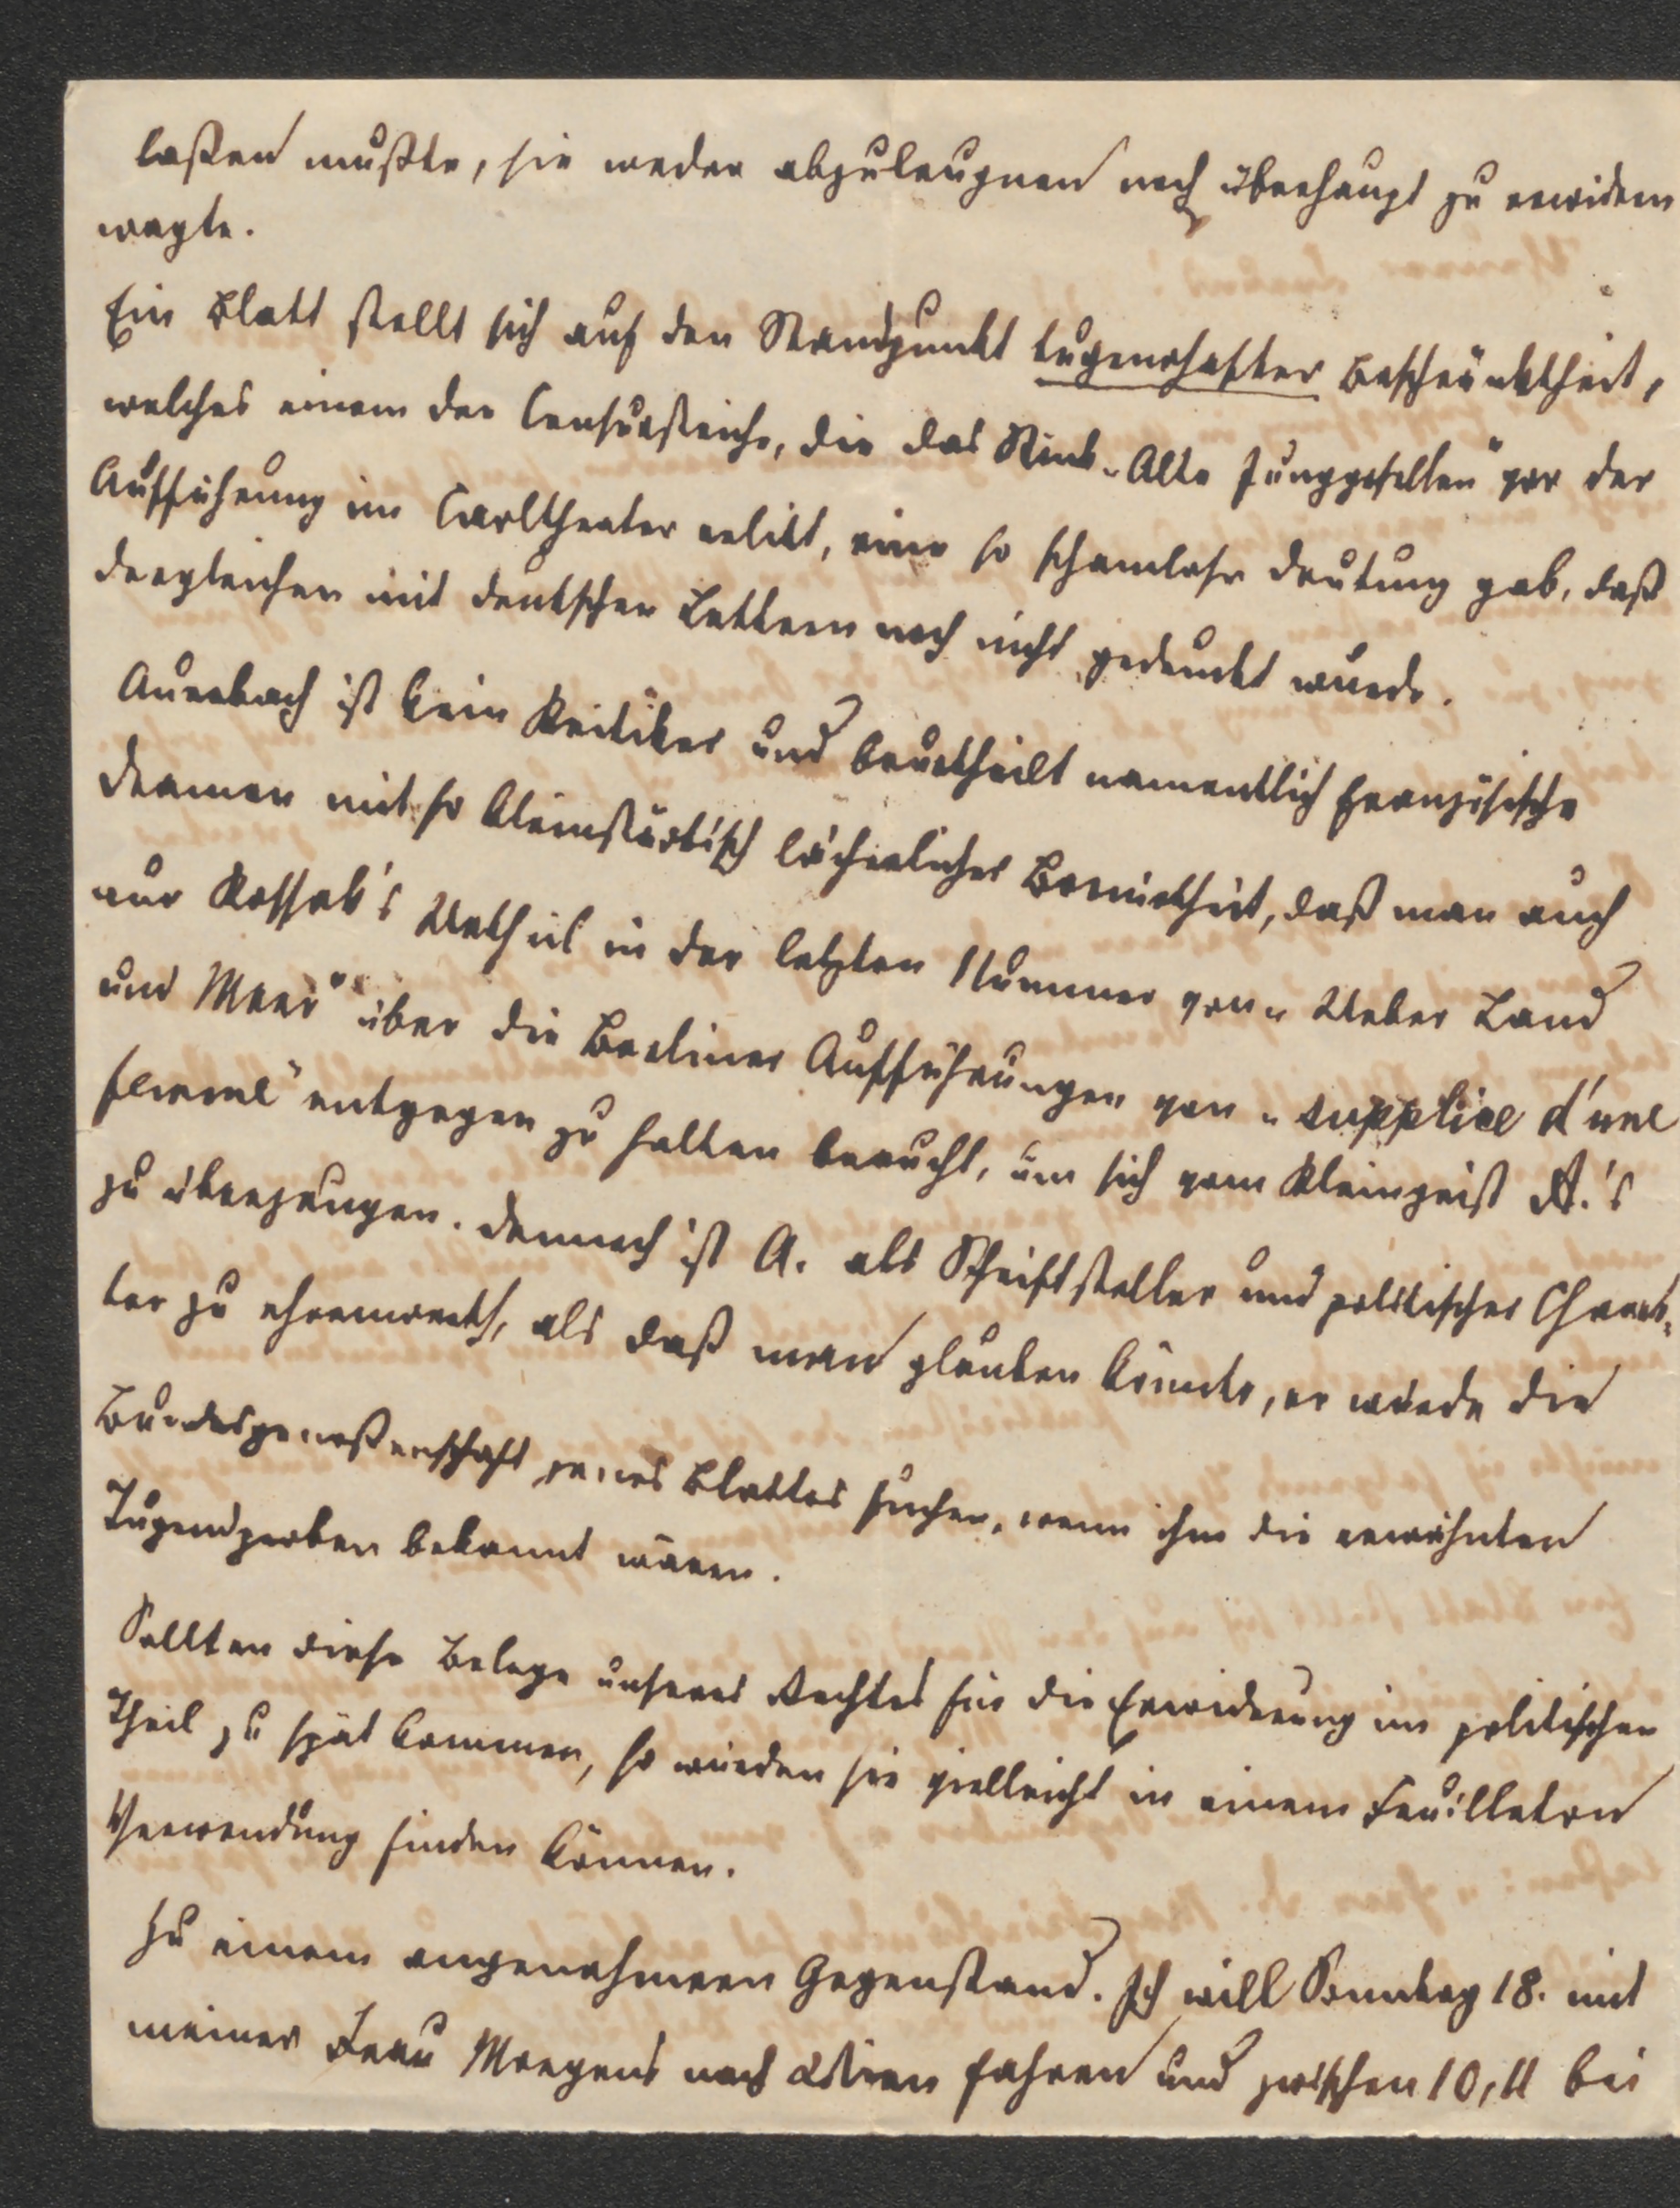 laßen mußte, sie weder abzuleugnen noch überhaupt zu erwidern
wagte.
Ein Blatt stellt sich auf den Standpunkt tugendhafter Beschränktheit,
welches einem der Censurstriche, die das Stück „Alte Junggesellen“ vor der
Aufführung im Carltheater erlitt, eine so schamlose Deutung gab, daß
dergleichen mit deutschen Lettern noch nicht gedruckt wurde.
Auerbach ist kein Kritiker und beurtheilt namentlich französische
Dramen mit so kleinstädtisch lächerlicher Bornirtheit, daß man auch
nur Kossak's Urtheil in der letzten Nummer von „Ueber Land
und Meer“ über die Berliner Aufführungen von „supplice d'une
femme“ entgegen zu halten braucht, um sich vom Kleingeist A.'s
zu überzeugen. Dennoch ist A. als Schriftsteller und politischer Charak-
ter zu ehrenwerth, als daß man glauben könnte, er würde die
Bundesgenoßenschaft jenes Blattes suchen, wenn ihm die erwähnten
Tugendproben bekannt wären.
Sollten diese Belege unseres Rechtes für die Erwiderung im politischen
Theil zu spät kommen, so würden sie vielleicht in einem Feuilleton
Verwendung finden können.
Zu einem angenehmern Gegenstand. Ich will Sonntag 18. mit
meiner Frau Morgens nach Wien fahren und zwischen 10, 11 bei